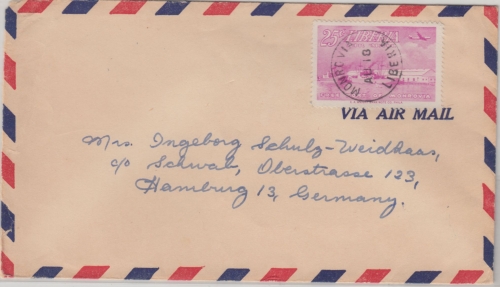 25¢ LIBERIA
MONROVIA
AU 10
LIBERIA
VIA AIR MAIL
Mrs. Ingeborg Schulz-Weidhaas,
c/o Schwab, Oberstrasse 123,
Hamburg 13, Germany.